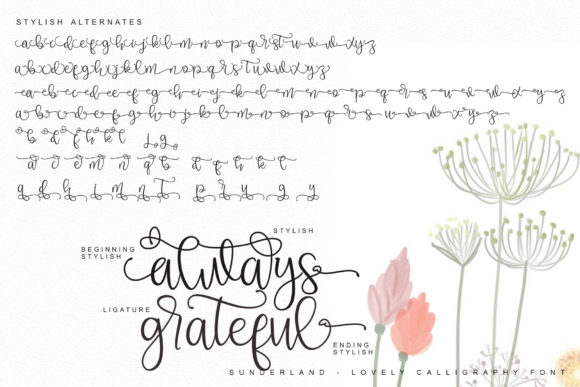 STYLISH ALTERNATES
abcdefghijklmnopqrstuvwxyz
abcdefghijklmnopqrstuvwxyz
abcdefghijklmnopqrstuvwxyz
abcdefghijklmnopqrstuvwxyz
b d f h k l j g
STYLISH
BEGINNING STYLISH
always
LIGATURE
grateful
ENDING STYLISH
SUNDERLAND - LOVELY CALLIGRAPHY FONT